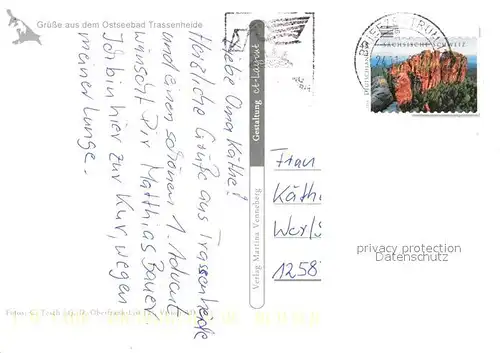 Grüße aus dem Ostseebad Trassenheide
Liebe Oma Käthe!
Herzliche Grüße aus Trassenheide
und einen schönen 1. Advent
wünscht Dir Matthias Bauer
Ich bin hier zur Kur, wegen
meiner Lunge.
Gestaltung ct-Layout
Verlag Martina Venneberg
SÄCHSISCHE SCHWEIZ
DEUTSCHLAND
BRIEFZENTRUM
Frau
Käth
1258
privacy protection
Datenschutz
Fotos: